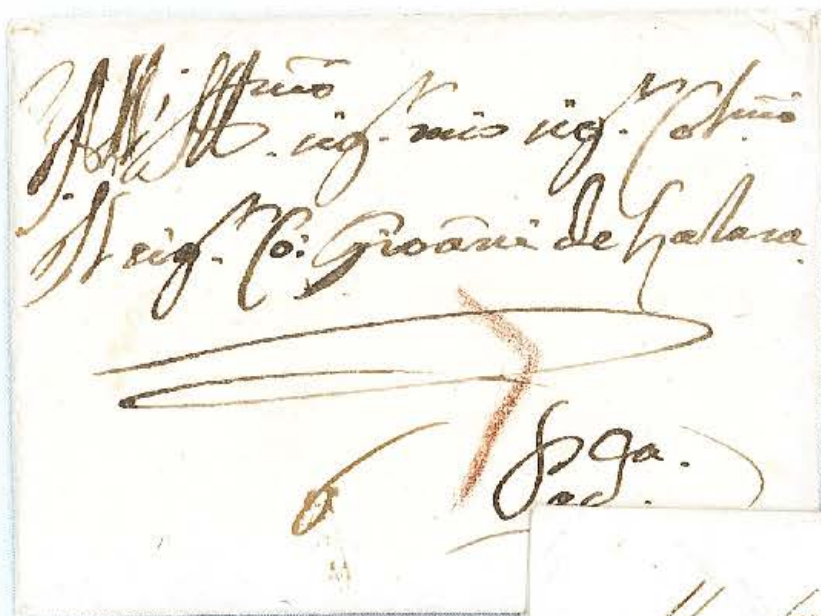 All Ill.mo
sig.r mio sig.r Col.mo
Il sig.r Co: Gioāni de Lazara
Pad.a